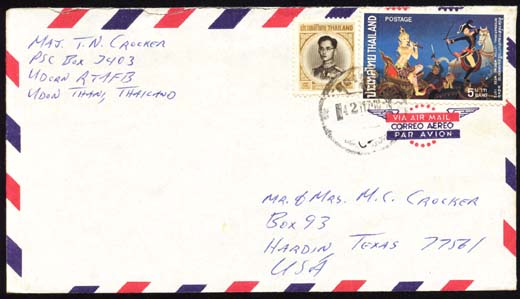 MAJ. T.N. CROCKER
PSC BOX 2403
UDORN RTAFB
UDON THANI, THAILAND
ประเทศไทย THAILAND
ประเทศไทย THAILAND
POSTAGE
5 บาท
BAHT
VIA AIR MAIL
CORREO AEREO
PAR AVION
MR. & MRS. M.C. CROCKER
BOX 93
HARDIN, TEXAS 77561
USA